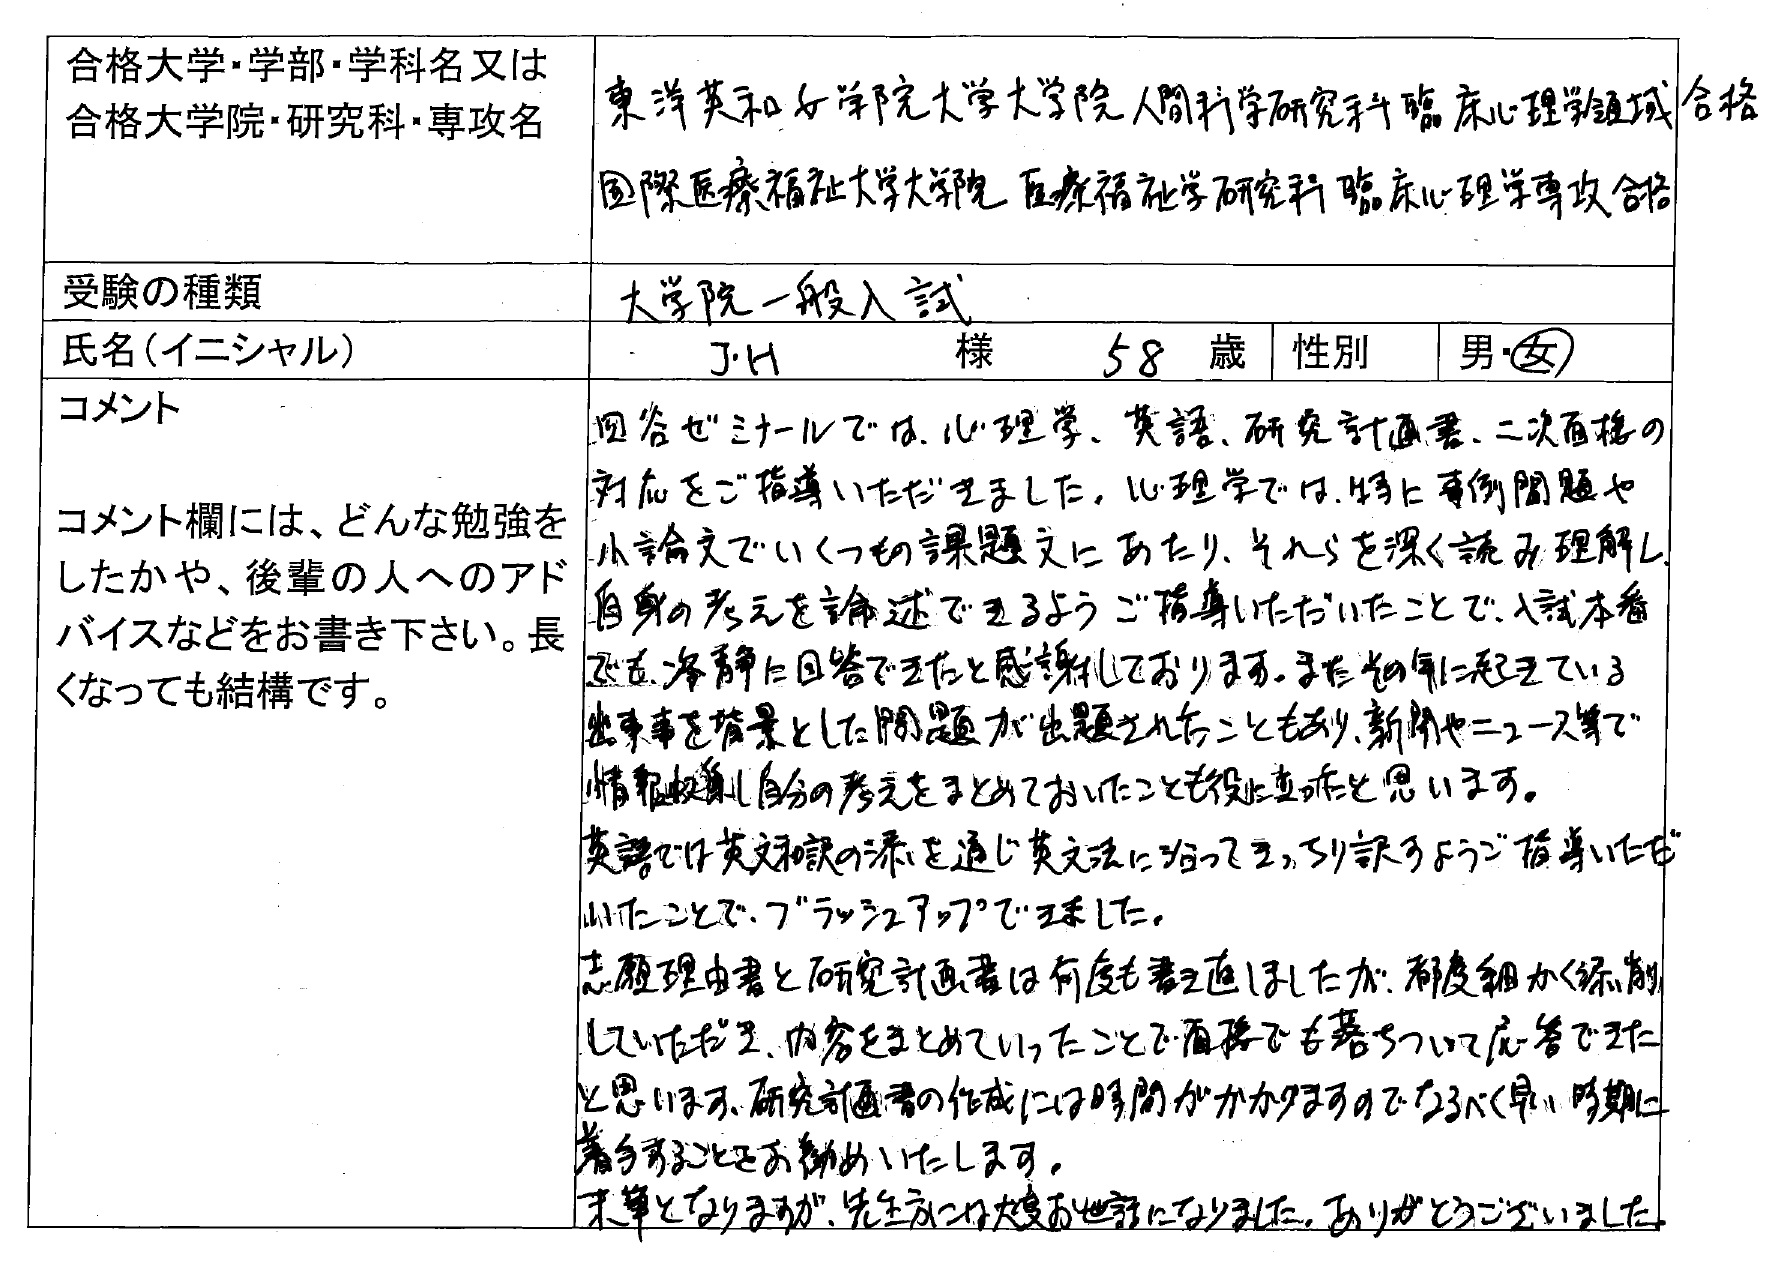 合格大学・学部・学科名又は
合格大学院・研究科・専攻名
東洋英和女学院大学大学院 人間科学研究科 臨床心理学領域 合格
国際医療福祉大学大学院 医療福祉学研究科 臨床心理学専攻 合格
受験の種類
大学院一般入試
氏名（イニシャル） J.H 様 58 歳 性別 男・女
コメント
コメント欄には、どんな勉強を
したかや、後輩の人へのアド
バイスなどをお書き下さい。長
くなっても結構です。
四谷ゼミナールでは、心理学、英語、研究計画書、二次面接の
対応をご指導いただきました。心理学では、特に事例問題や
小論文でいくつもの課題文にあたり、それらを深く読み理解し、
自身の考えを論述できるようご指導いただいたことで、入試本番
でも、冷静に回答できたと感謝しております。またその年に起きている
出来事を背景とした問題が出題されたこともあり、新聞やニュース等で
情報収集し自分の考えをまとめておいたことも役に立ったと思います。
英語では英文和訳の添を通じ英文法に沿ってきっちり訳すようご指導いただ
いたことで、ブラッシュアップできました。
志願理由書と研究計画書は何度も書き直しましたが、都度細かく添削
していただき、内容をまとめていったことで面接でも落ちついて応答できた
と思います。研究計画書の作成には時間がかかりますのでなるべく早い時期に
着手することをお勧めいたします。
末筆となりますが、先生方には大変お世話になりました。ありがとうございました。